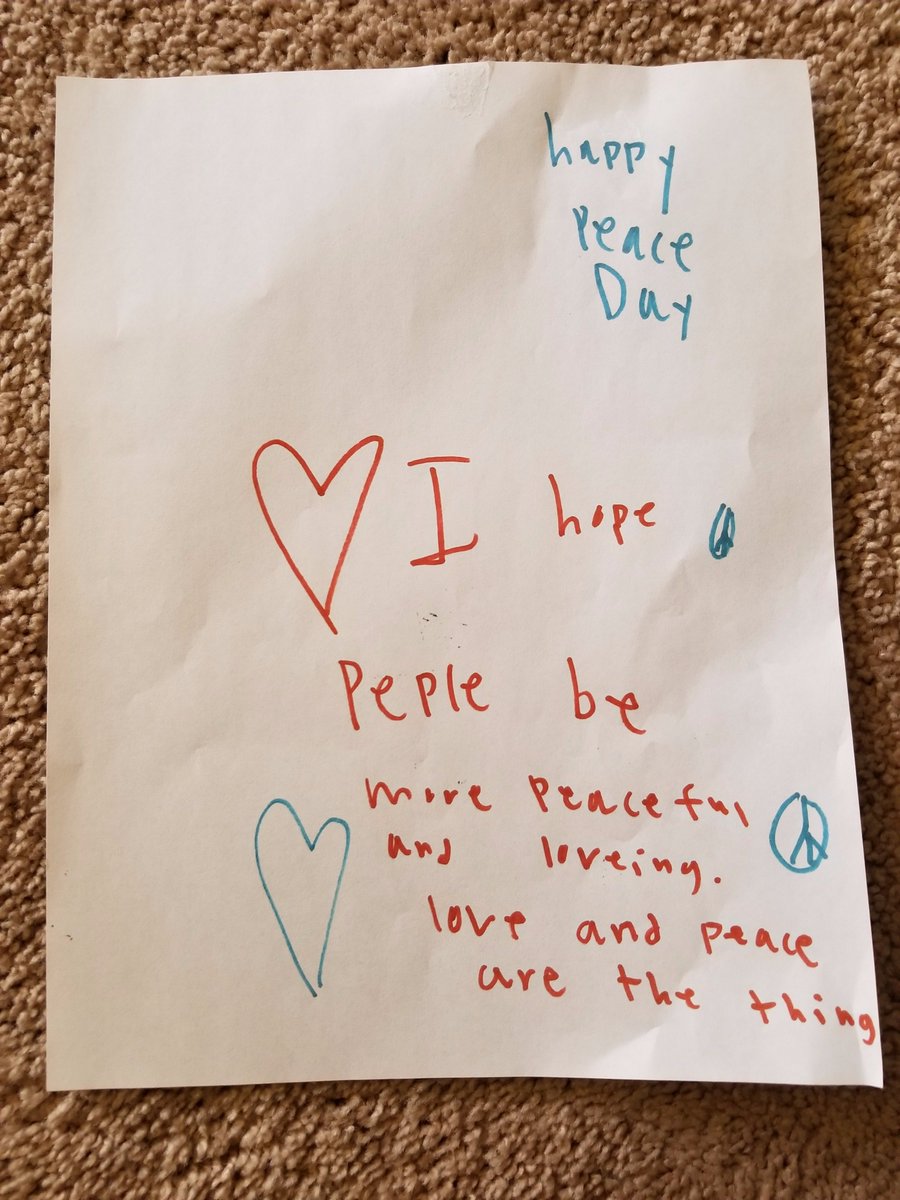 happy
Peace
Day
I hope
Peple be
more Peaceful
and loveing.
love and peace
are the thing